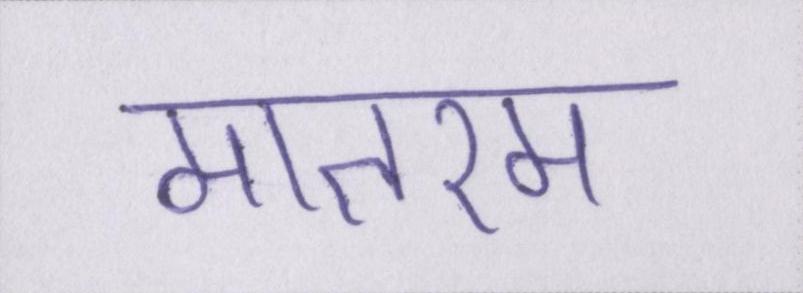 मातरम